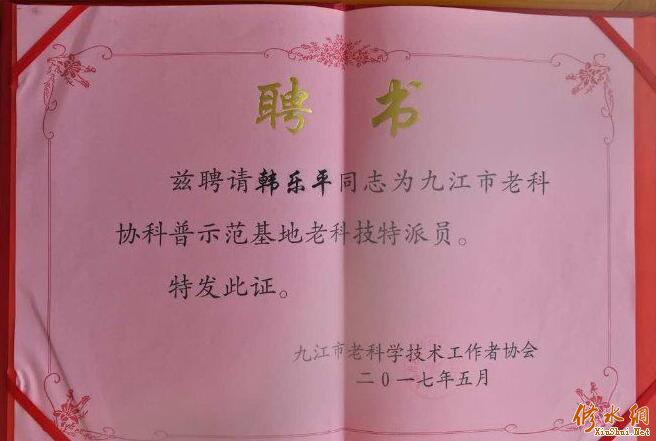 聘书
兹聘请韩乐平同志为九江市老科
协科普示范基地老科技特派员。
特发此证。
九江市老科学技术工作者协会
二〇一七年五月
修水网
XiuShui.Net